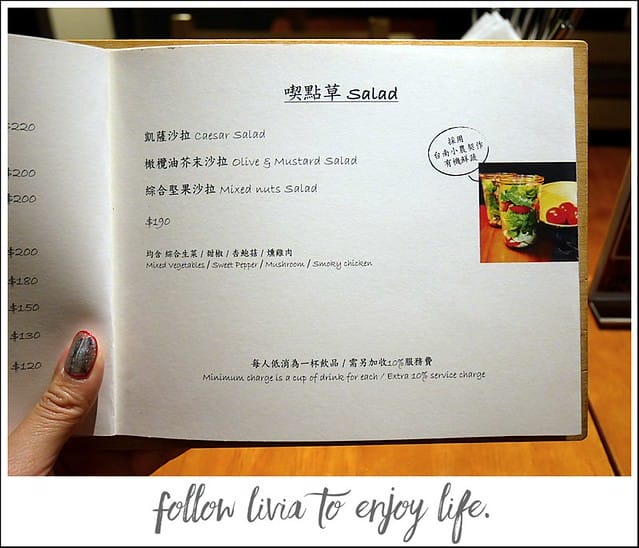 $220
$200
$200
$200
$180
$150
$130
$120
喫點草 Salad
凱薩沙拉 Caesar Salad
橄欖油芥末沙拉 Olive & Mustard Salad
綜合堅果沙拉 Mixed nuts Salad
$190
均含 綜合生菜 / 甜椒 / 杏鮑菇 / 燻雞肉
Mixed Vegetables / Sweet Pepper / Mushroom / Smoky chicken
採用
台南小農契作
有機鮮蔬
每人低消為一杯飲品 / 需另加收10%服務費
Minimum charge is a cup of drink for each / Extra 10% service charge
follow livia to enjoy life.